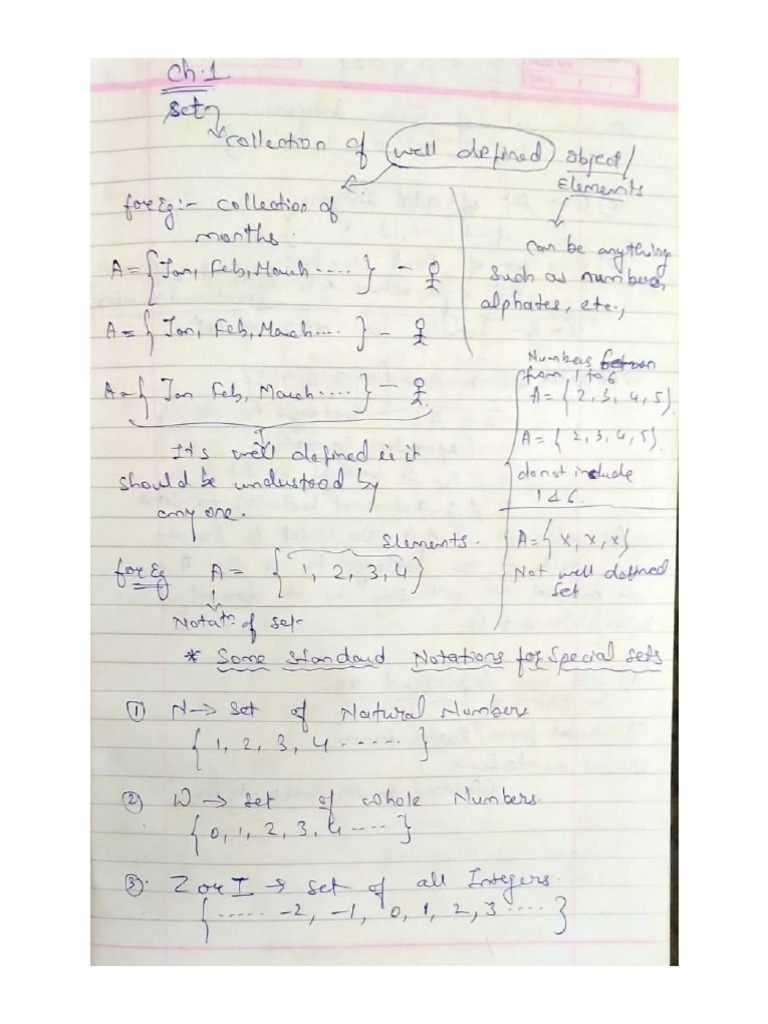 Ch.1
Set
collection of well defined object/
Elements
for Eg:- collection of
months.
A = {Jan, Feb, March .....} -
A = {Jan, Feb, March ....} -
A = { Jan Feb, March .....} -
It's well defined ie it
should be understood by
any one.
can be anything
such as numbers,
alphates, etc.,
Numbers
from 1 to 6
A = {2, 3, 4, 5}.
A = {2, 3, 4, 5}.
do not include
1 & 6.
A = {x, x, x}
Not well defined
set
Elements.
for Eg A = {1, 2, 3, 4}
Notatn of set
* Some Standard Notations for Special sets
① N → Set of Natural Numbers
{1, 2, 3, 4 ......}
② W → set of whole Numbers.
{0, 1, 2, 3, 4 ....}
③. Z or I → set of all Integers.
{ ..... -2, -1, 0, 1, 2, 3 .....}